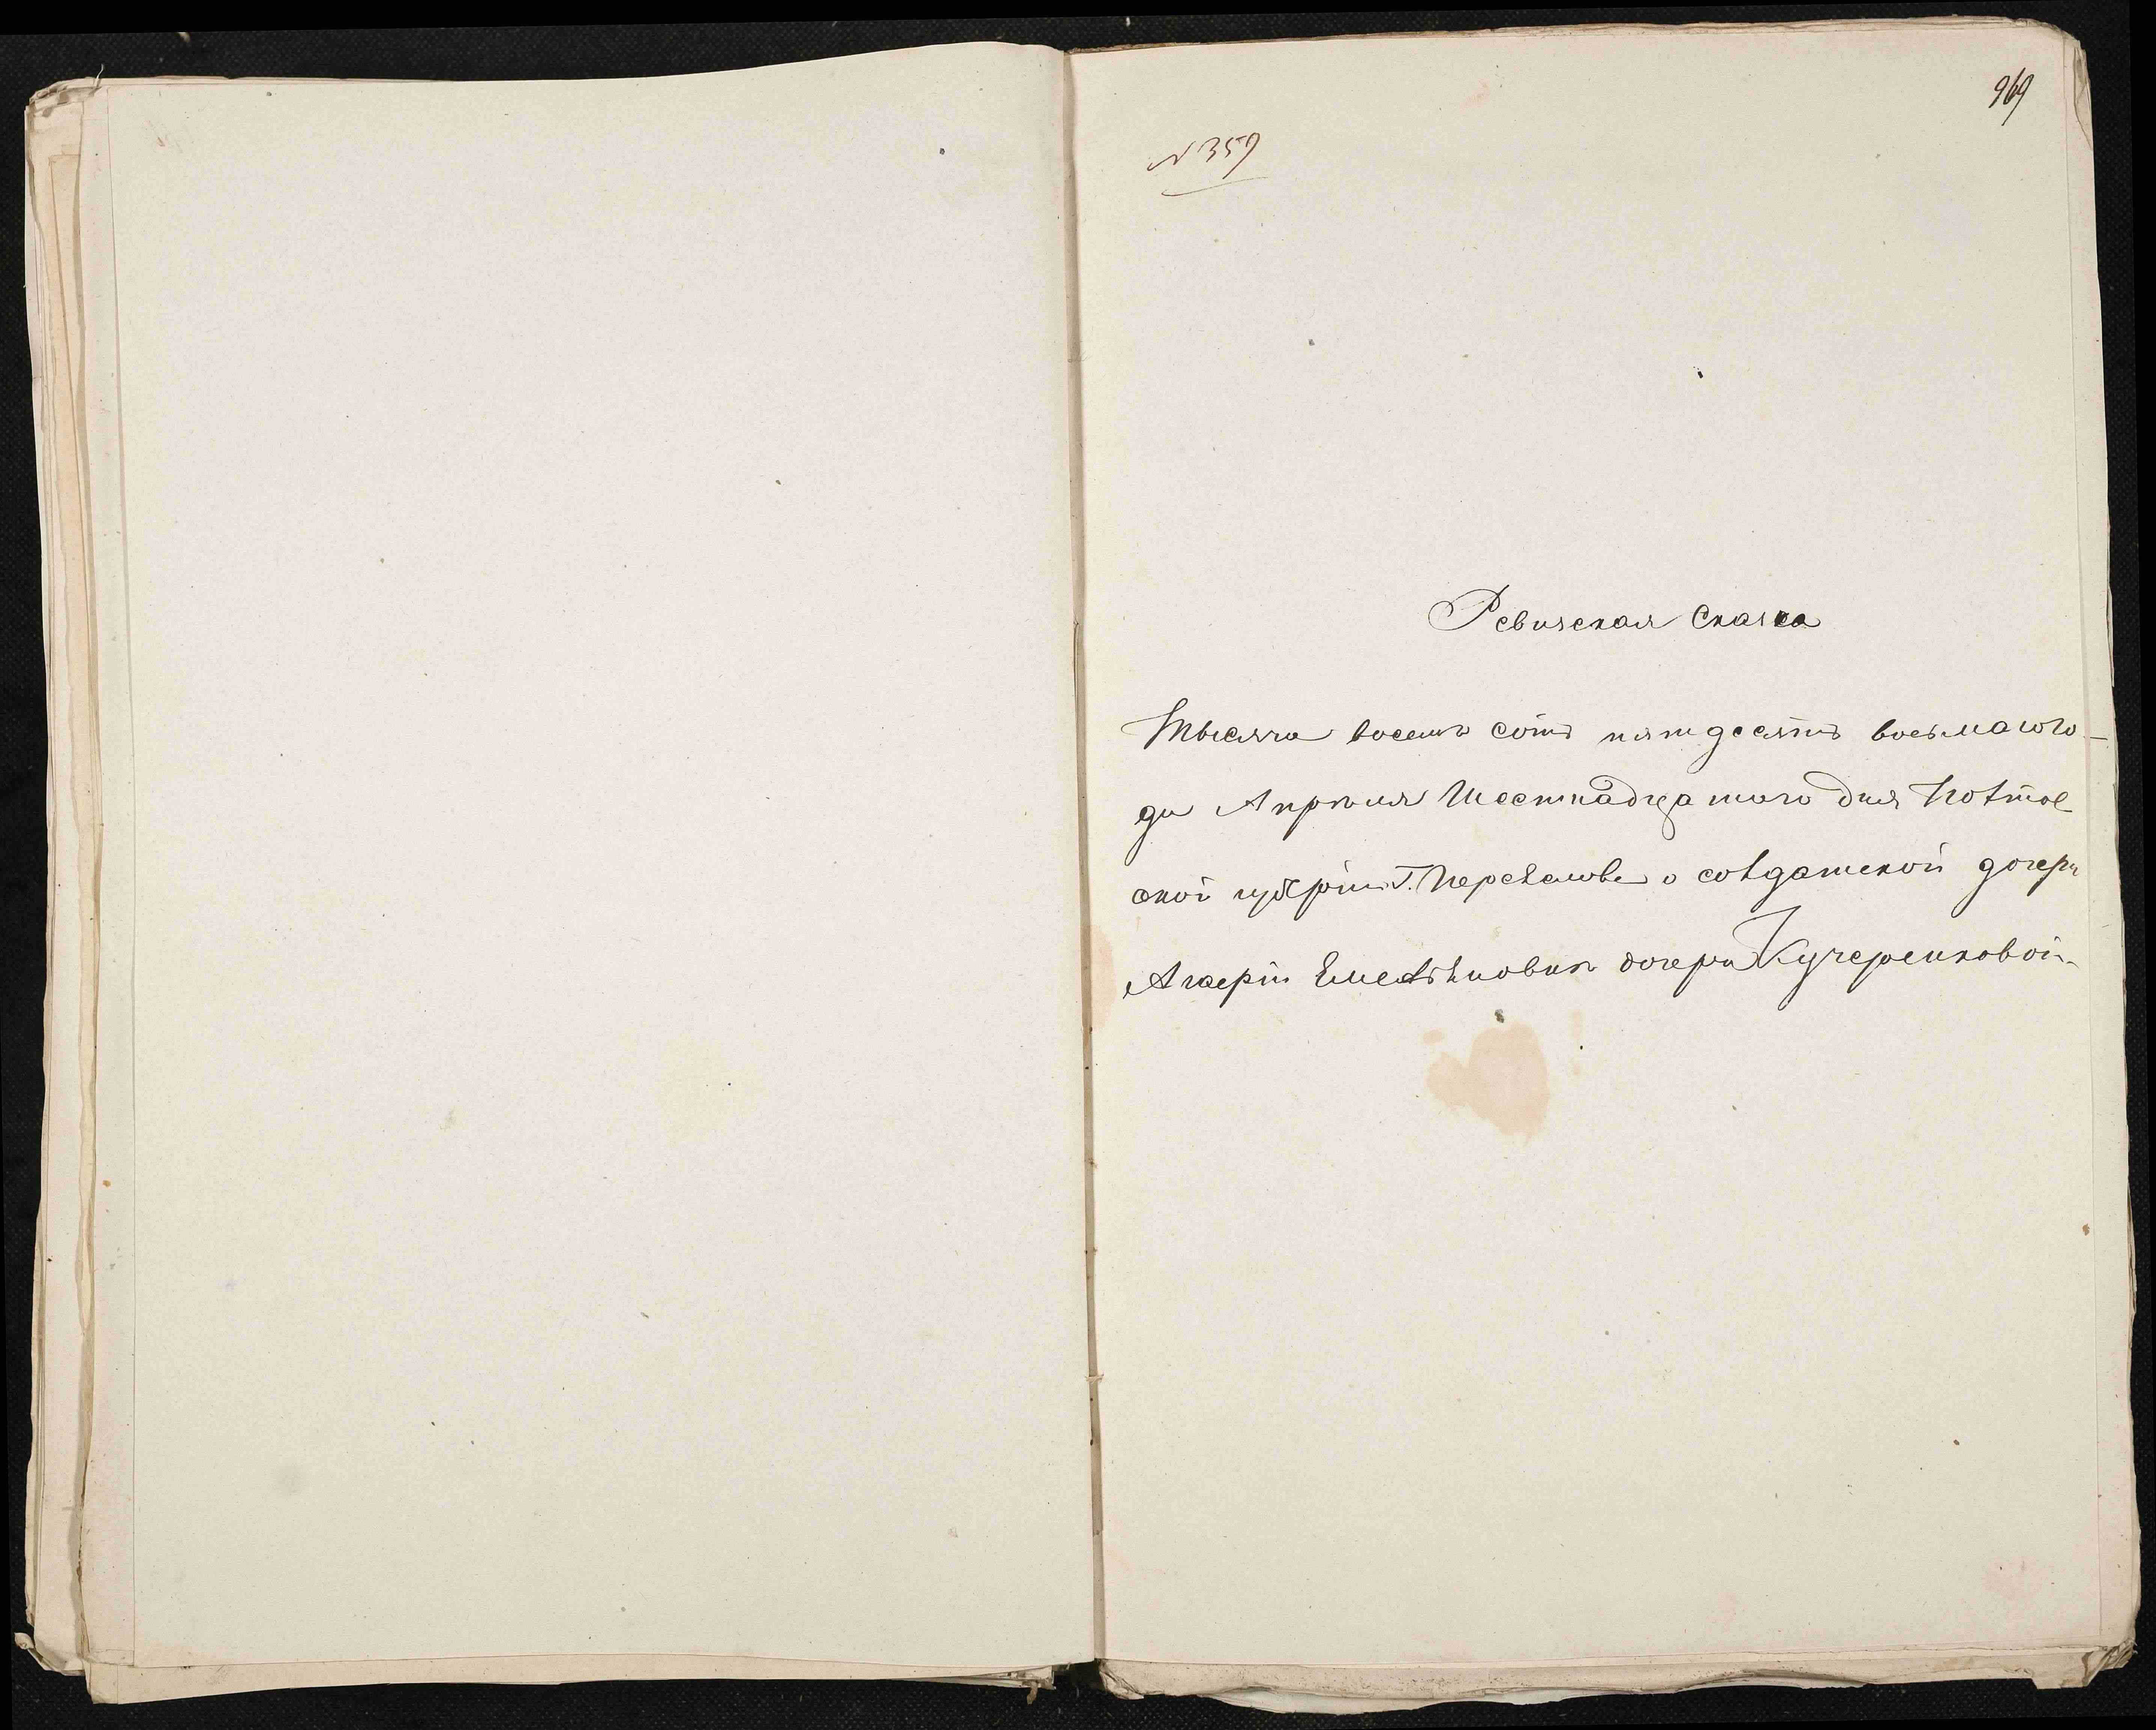 969
N 359
Ревизская Сказка
Тысяча восемь сотъ пятдесятъ восьмаго го-
да Апрѣля Шестнадцатаго дня Полтав
ской губерніи Г. Переяслова о солдатской дочери
Емельяновѣ дочери Кучеренковой